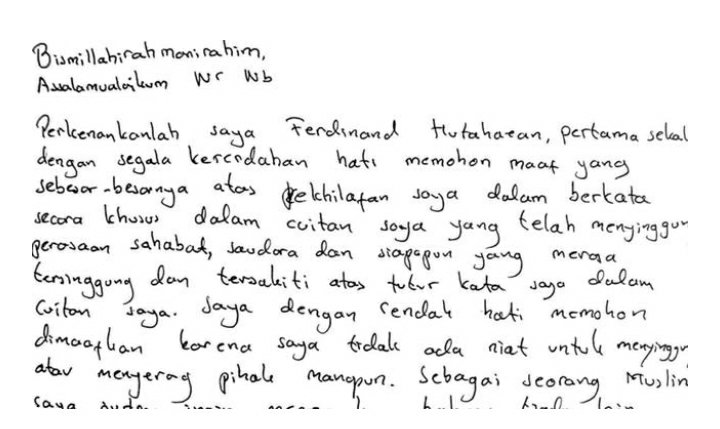 Bismillahirahmanirahim,
Assalamualaikum Wr Wb
Perkenankanlah saya Ferdinand Hutahaean, pertama sekal
dengan segala kerendahan hati memohon maaf yang
sebesar-besarnya atas kekhilafan saya dalam berkata
secara khusus dalam cuitan saya yang telah menyinggun
perasaan sahabat, saudara dan siapapun yang merasa
tersinggung dan tersakiti atas tutur kata saya dalam
cuitan saya. Saya dengan rendah hati memohon
dimaafkan karena saya tidak ada niat untuk menyinggu
atau menyerag pihak manapun. Sebagai seorang Muslim
saya